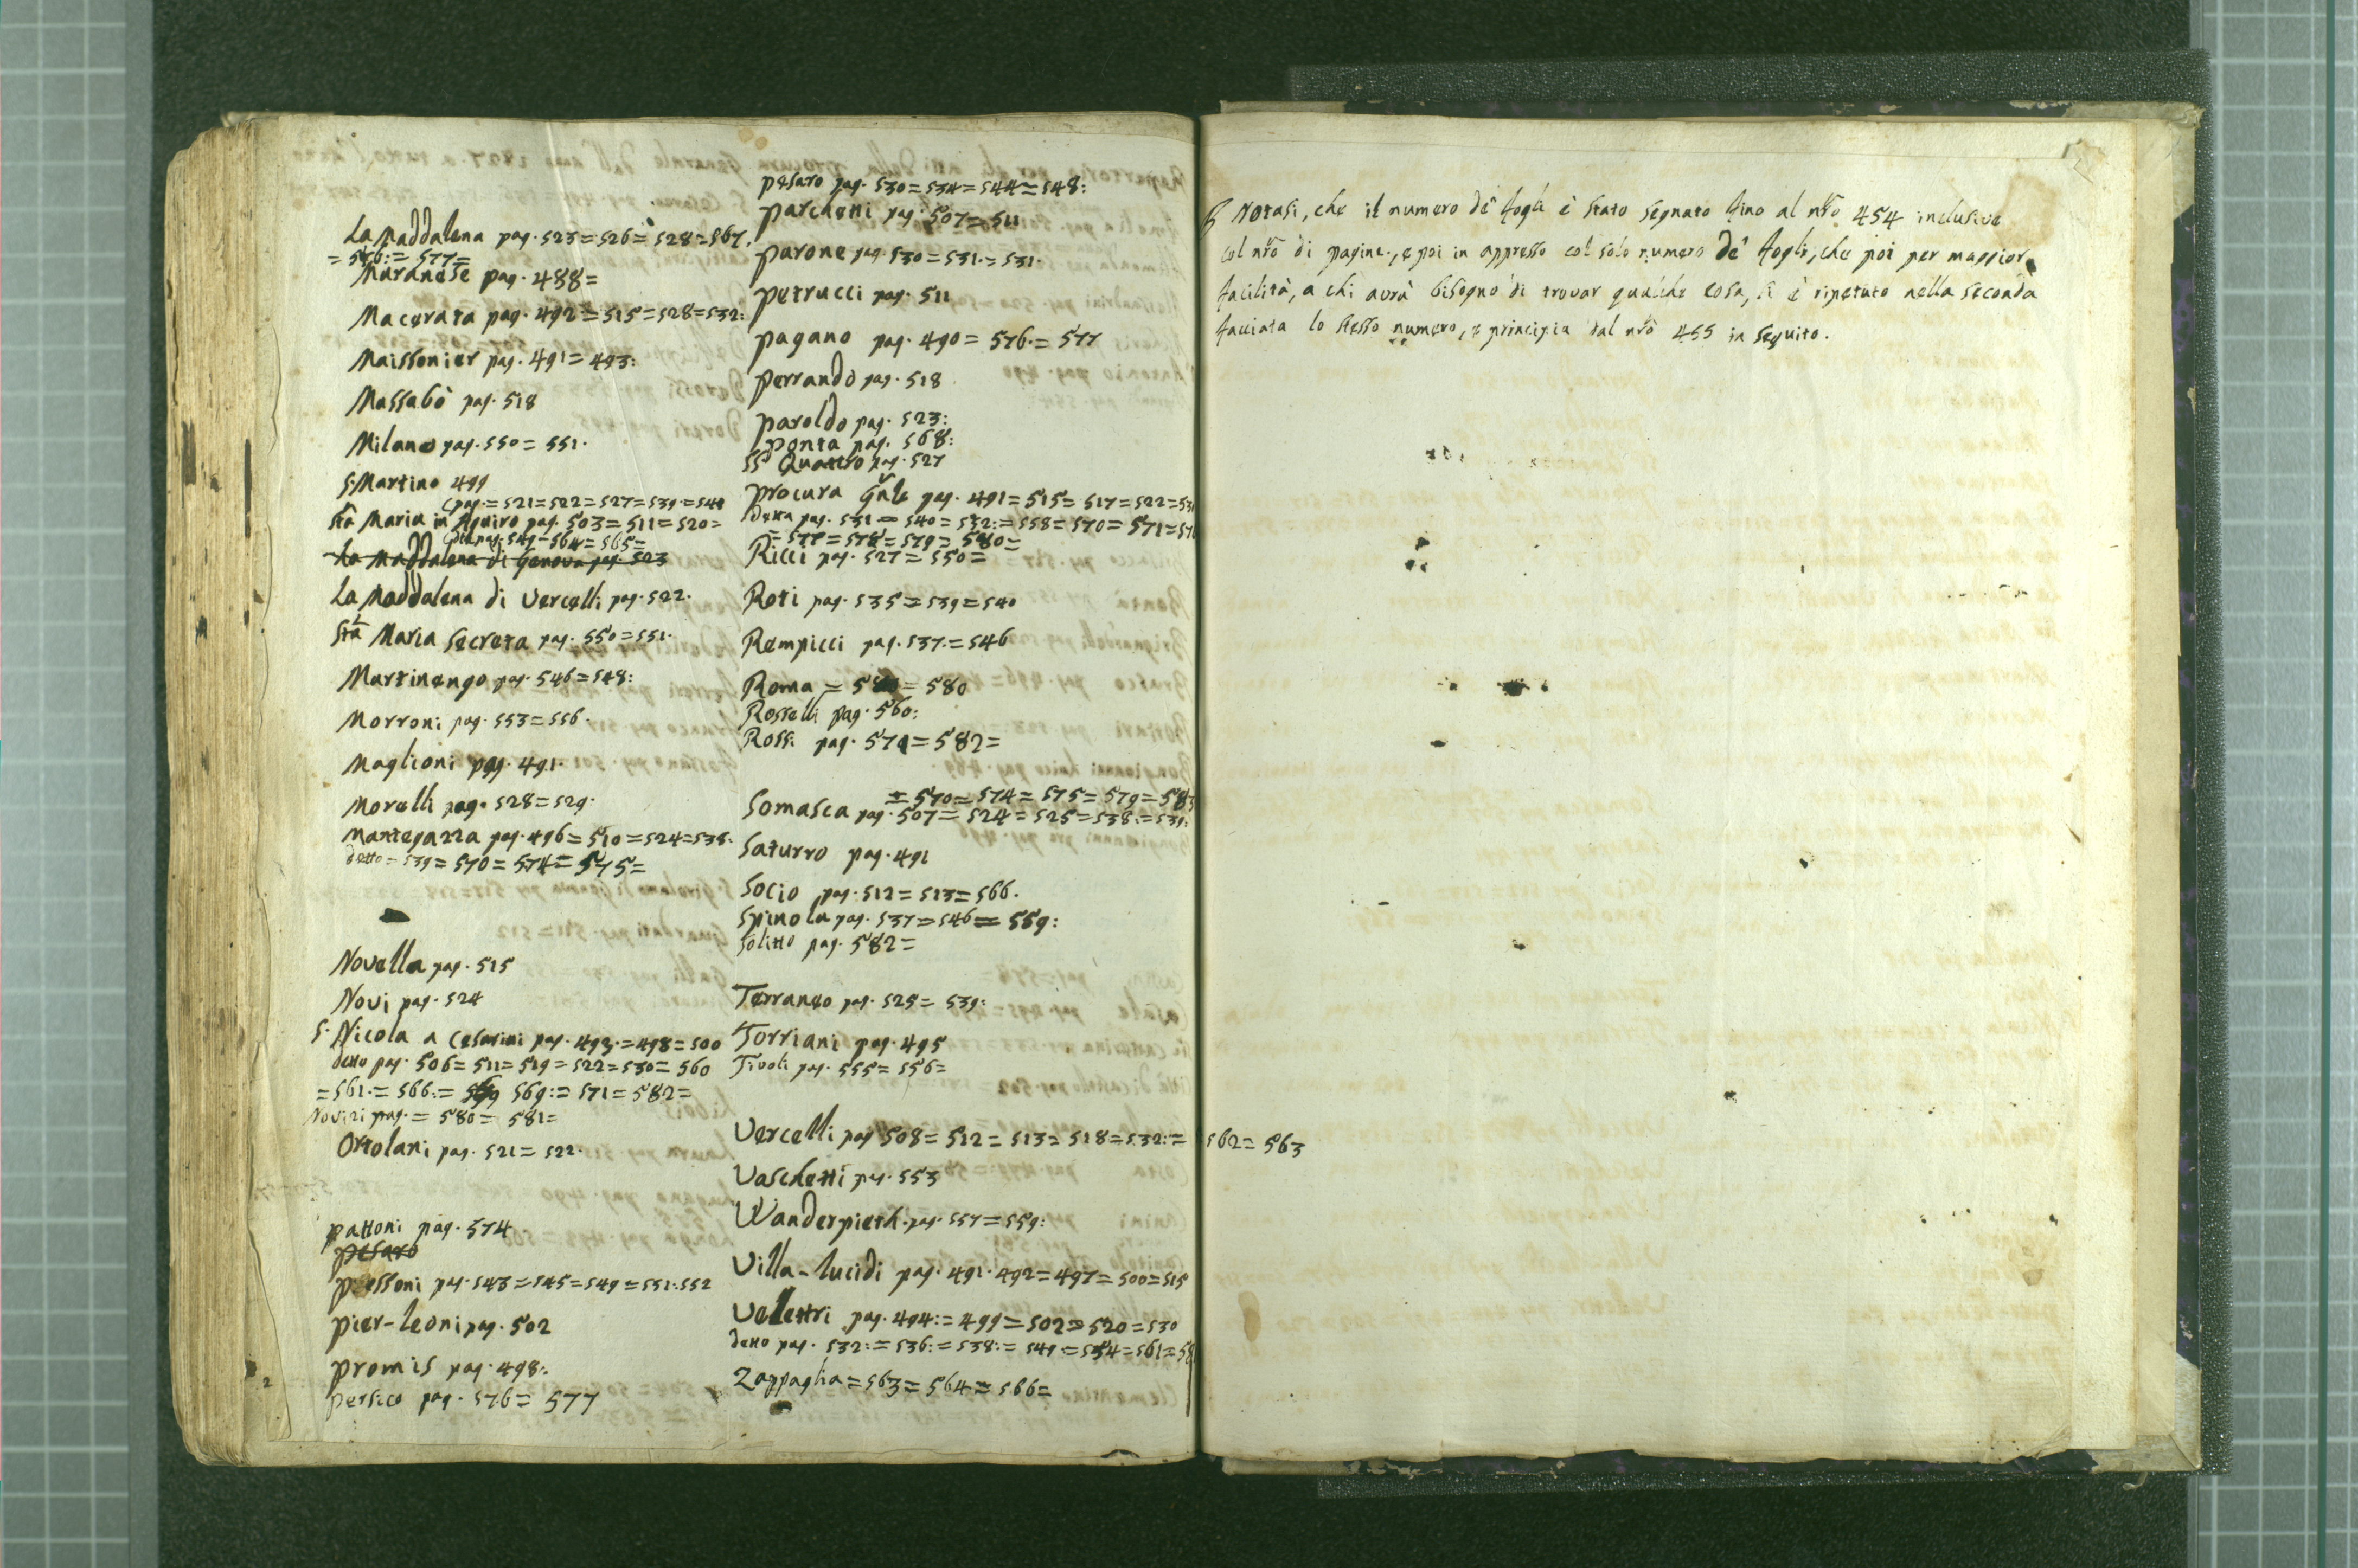 La Maddalena pag. 523=526=528=567.
=576:=577=
Muranese pag. 488=
Macerata pag. 492=515=528=532:
Maissonier pag. 491=493:
Massabò pag. 518
Milano pag. 550=551.
S. Martino 499
(pag.=521=522=527=539.=540
Sta Maria in Aquiro pag. 503=511=520=
549=564=565=
La Maddalena di Genova pag. 523
La Maddalena di Vercelli pag. 522.
Sta Maria Secreta pag. 550=551.
Martinengo pag. 546=548:
Morroni pag. 553=556.
Maglioni pag. 491.
Morelli pag. 528=529.
Mantegazza pag. 496=510=524=538.
detto=539=570=574=575=
Novella pag. 515
Novi pag. 524
S. Nicola a Cesarini pag. 493.=498=500
detto pag. 506=511=519=522=530=560
=561.=566:= 569:=571=582=
pag.=580=581=
Ortolani pag. 521=522.
pattoni pag. 574
pesaro
pressoni pag. 543=545=549=551.552
pier-leoni pag. 502
promis pag. 498:.
persico pag. 576=577
pesaro pag. 530=534=544=548:
parchetti pag. 507=511
parone pag. 530=531.=531.
petrucci pag. 511
pagano pag. 490=576.=577
perrando pag. 518
paroldo pag. 523:
ponta pag. 568:
SS Quattro pag. 527
procura Gnle pag. 491=515=517=522=531
Detta pag. 531=540=532:=558=570=571=576
=577=578=579=580=
Ricci pag. 527=550=
Roti pag. 535=539=540
Rempicci pag. 537.=546
Roma = =580
Rosselli pag. 560:
Rossi pag. 571=582=
=570=574=575=579=583
Somasca pag. 507=524=525=538:=539:
Saturro pag. 491
Socio pag. 512=513=566.
Spinola pag. 537=546=559:
Solitto pag. 582=
Terraneo pag. 525=539:
Torriani pag. 495
Tivoli pag. 555=556=
Vercelli pag 508=512=513=518=532:=562=563
Vaschetti pag. 553
Wanderpieth. pag. 557=559:
Villa-lucidi pag. 491.492=497=500=515
Velletri pag. 494:=499=502=520=530
detto pag. 532:=536:=538:=549=554=561=58
Zappaglia=563=564=566=
Notasi, che il numero de' fogli è stato segnato fino al nro 454 inclusive
col nro di pagine, e poi in appresso col solo numero de' fogli, che poi per maggior
facilità, a chi avrà bisogno di trovar qualche cosa, si è ripetuto nella seconda
facciata lo stesso numero, e principia dal nro 455 in seguito.